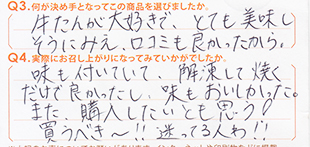 Q3.何が決め手となってこの商品を選びましたか。
牛たんが大好きで、とても美味し
そうにみえ、口コミも良かったから。
Q4.実際にお召し上がりになってみていかがでしたか。
味も付いていて、解凍して焼く
だけで良かったし、味もおいしかった。
また、購入したいとも思う!
買うべき〜!!迷ってる人わ!!